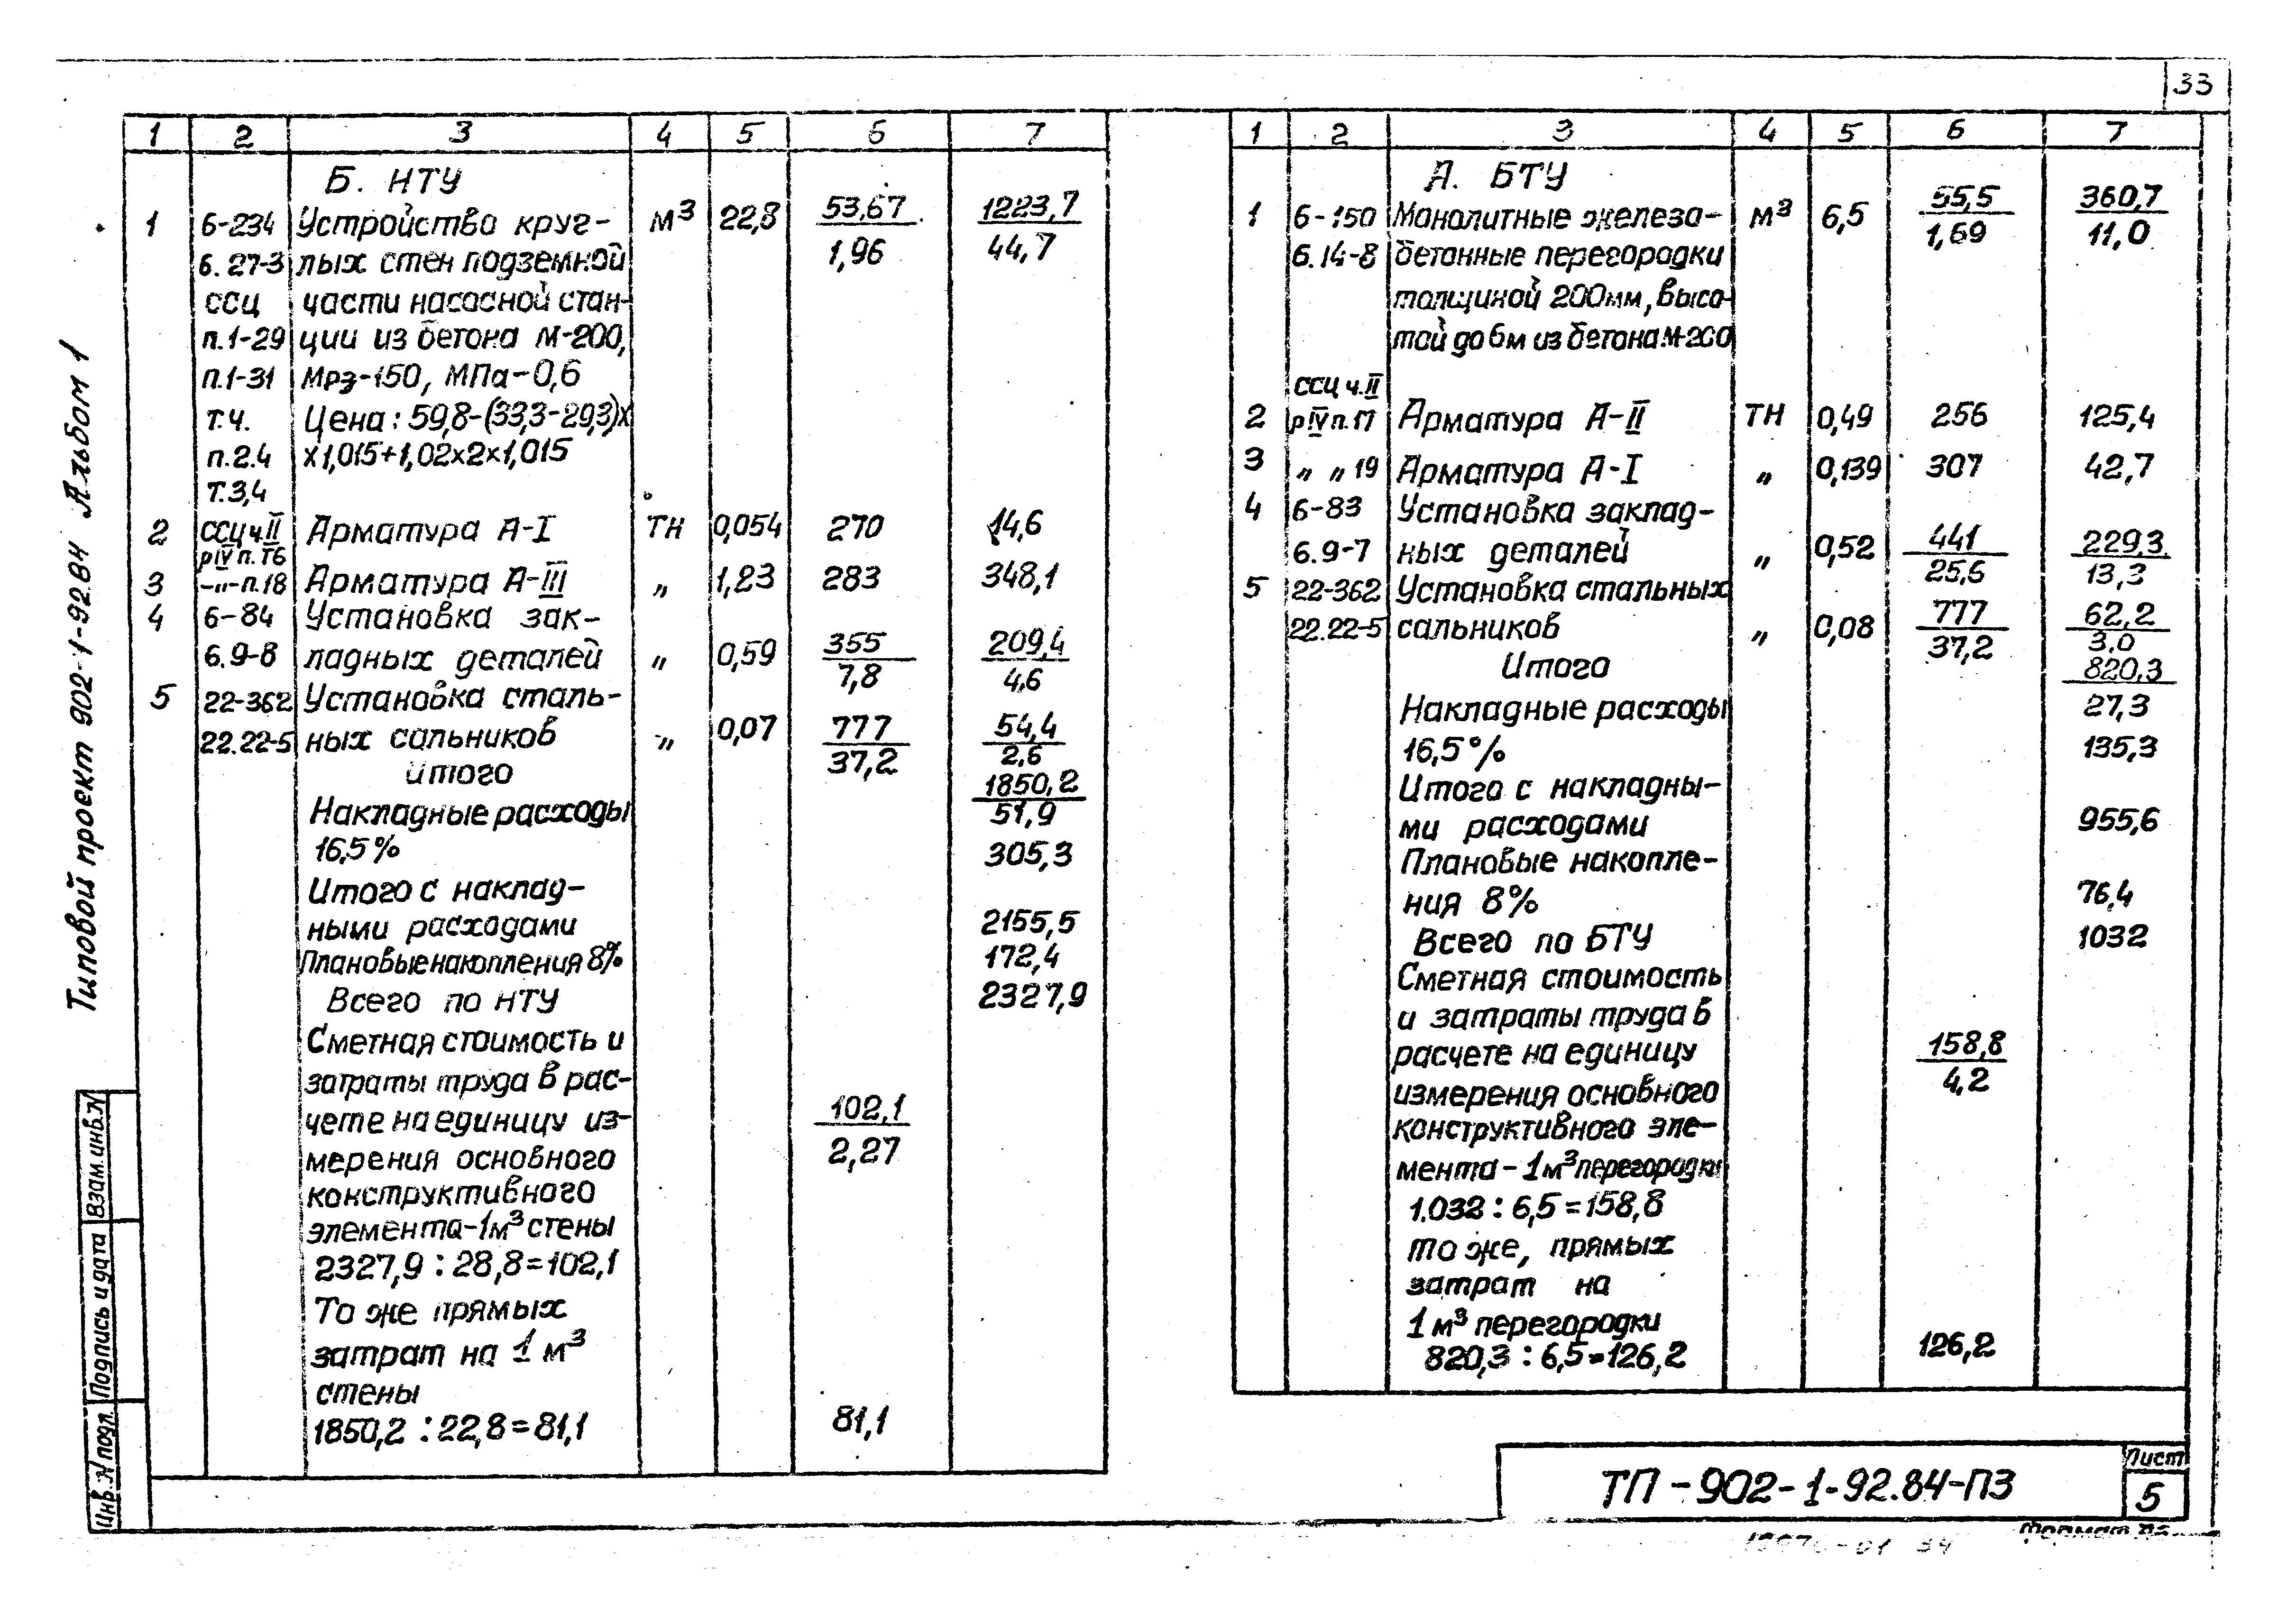 33
Типовой проект 902-1-92.84 Альбом 1
1 2 3 4 5 6 7
Б. НТУ
1 6-234 Устройство круг- м³ 22,8 53,67 1223,7
6.27-3 лых стен подземной 1,96 44,7
ССЦ части насосной стан-
п.1-29 ции из бетона М-200,
п.1-31 Мрз-150, МПа-0,6
т.ч. Цена: 59,8-(33,3-29,3)х
п.2.4 х1,015+1,02х2х1,015
т.3,4
2 ССЦ ч.II Арматура А-I тн 0,054 270 14,6
рIV п.16
3 -"-п.18 Арматура А-III " 1,23 283 348,1
4 6-84 Установка зак-
6.9-8 ладных деталей " 0,59 355 209,4
7,8 4,6
5 22-362 Установка сталь-
22.22-5 ных сальников " 0,07 777 54,4
37,2 2,6
Итого 1850,2
Накладные расходы 51,9
16,5% 305,3
Итого с наклад-
ными расходами 2155,5
Плановые накопления 8% 172,4
Всего по НТУ 2327,9
Сметная стоимость и
затраты труда в рас-
чете на единицу из- 102,1
мерения основного 2,27
конструктивного
элемента-1м³ стены
2327,9 : 28,8=102,1
То же прямых
затрат на 1 м³
стены
1850,2 : 22,8=81,1 81,1
1 2 3 4 5 6 7
А. БТУ
1 6-150 Монолитные железо- м³ 6,5 55,5 360,7
6.14-8 бетонные перегородки 1,69 11,0
толщиной 200мм, высо-
той до 6м из бетона М-200
ССЦ ч.II
2 рIV п.17 Арматура А-II тн 0,49 256 125,4
3 " " 19 Арматура А-I " 0,139 307 42,7
4 6-83 Установка заклад-
6.9-7 ных деталей " 0,52 441 229,3
25,6 13,3
5 22-362 Установка стальных
22.22-5 сальников " 0,08 777 62,2
37,2 3,0
Итого 820,3
Накладные расходы 27,3
16,5% 135,3
Итого с накладны-
ми расходами 955,6
Плановые накопле-
ния 8% 76,4
Всего по БТУ 1032
Сметная стоимость
и затраты труда в
расчете на единицу 158,8
измерения основного 4,2
конструктивного эле-
мента-1м³ перегородки
1.032 : 6,5=158,8
то же, прямых
затрат на
1 м³ перегородки
820,3 : 6,5=126,2 126,2
Взам. инв. N
Подпись и дата
Инв. N подл.
ТП-902-1-92.84-ПЗ
Лист
5
Формат